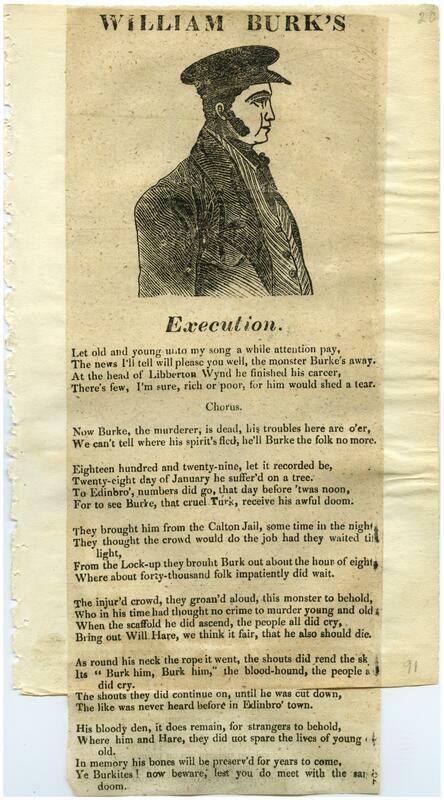 20
WILLIAM BURK'S
Execution.
Let old and young unto my song a while attention pay,
The news I'll tell will please you well, the monster Burke's away.
At the head of Libberton Wynd he finished his career,
There's few, I'm sure, rich or poor, for him would shed a tear.
Chorus.
Now Burke, the murderer, is dead, his troubles here are o'er,
We can't tell where his spirit's fled, he'll Burke the folk no more.
Eighteen hundred and twenty-nine, let it recorded be,
Twenty-eight day of January he suffer'd on a tree.
To Edinbro', numbers did go, that day before 'twas noon,
For to see Burke, that cruel Turk, receive his awful doom.
They brought him from the Calton Jail, some time in the night
They thought the crowd would do the job had they waited till
light,
From the Lock-up they brouht Burk out about the hour of eight
Where about forty-thousand folk impatiently did wait.
The injur'd crowd, they groan'd aloud, this monster to behold,
Who in his time had thought no crime to murder young and old
When the scaffold he did ascend, the people all did cry,
Bring out Will Hare, we think it fair, that he also should die.
As round his neck the rope it went, the shouts did rend the sk
Its " Burk him, Burk him," the blood-hound, the people a
did cry.
The shouts they did continue on, until he was cut down,
The like was never heard before in Edinbro' town.
His bloody den, it does remain, for strangers to behold,
Where him and Hare, they did not spare the lives of young
old.
In memory his bones will be preserv'd for years to come,
Ye Burkites! now beware, lest you do meet with the sa
doom.
91